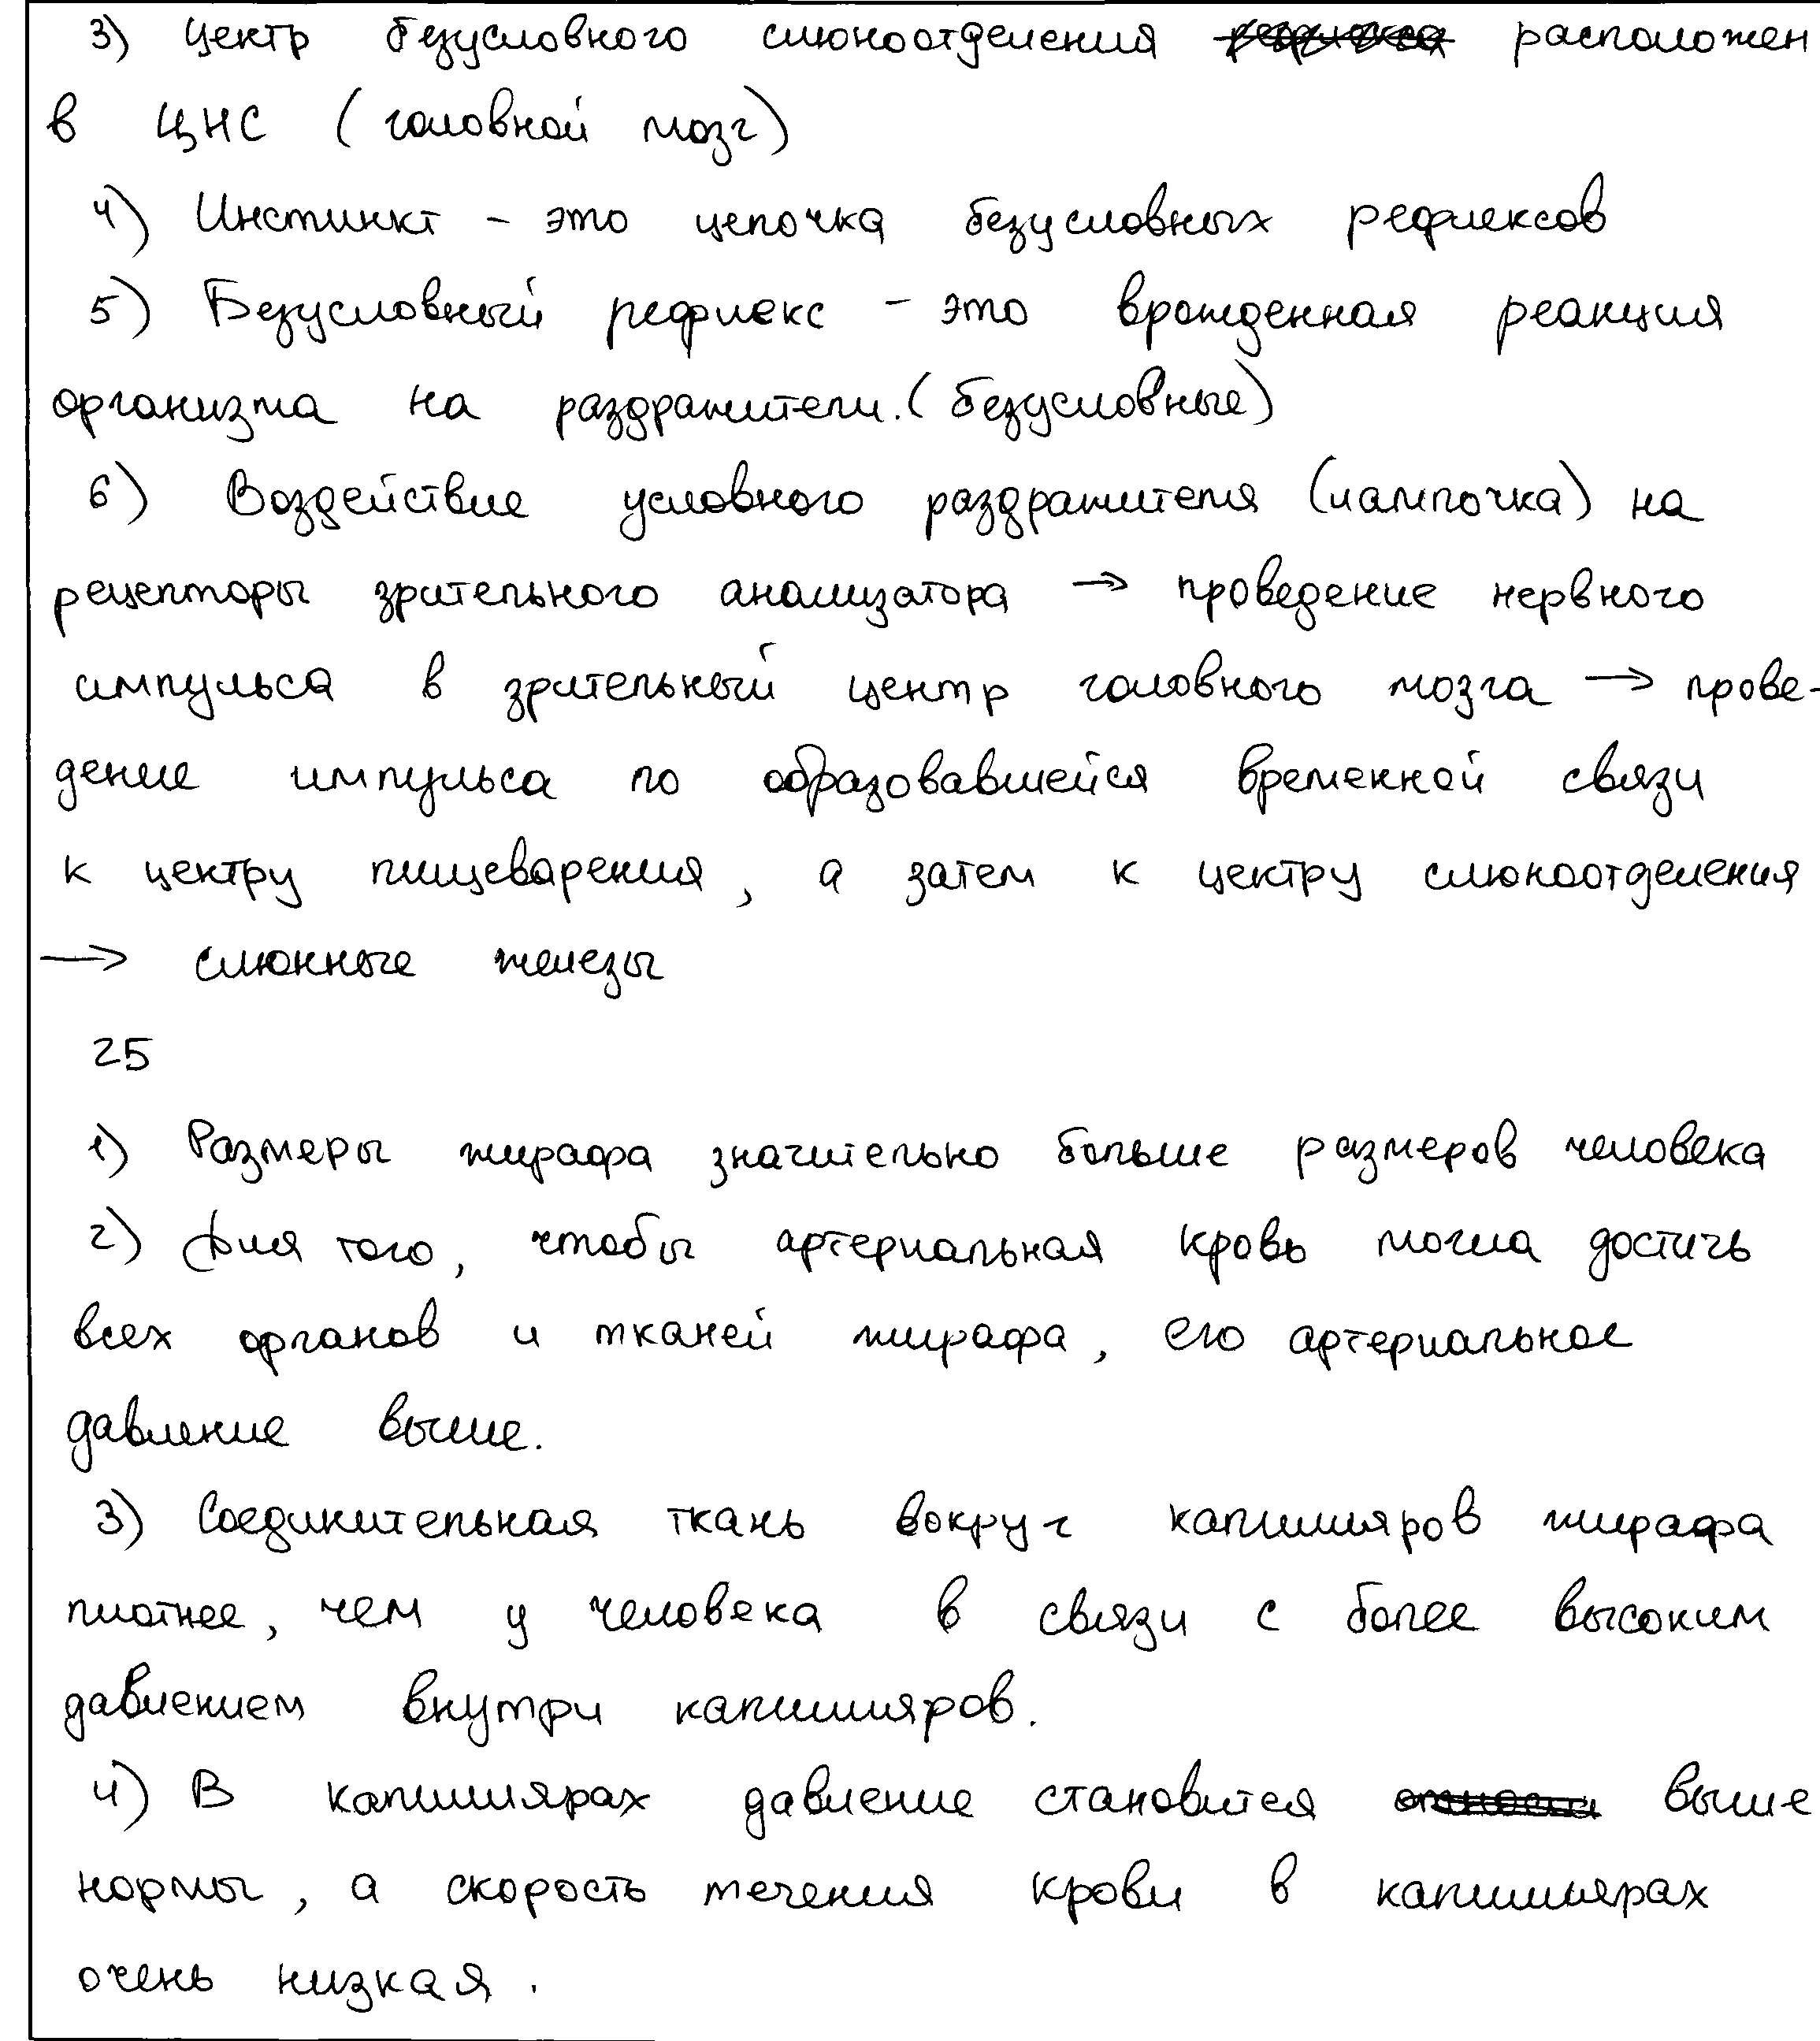 3) Центр безусловного слюноотделения расположен
в ЦНС (головной мозг)
4) Инстинкт - это цепочка безусловных рефлексов
5) Безусловный рефлекс - это врожденная реакция
организма на раздражители.(безусловные)
6) Воздействие условного раздражителя (лампочка) на
рецепторы зрительного анализатора → проведение нервного
импульса в зрительный центр головного мозга → прове-
дение импульса по образовавшейся временной связи
к центру пищеварения, а затем к центру слюноотделения
→ слюнные железы
25
1) Размеры жирафа значительно больше размеров человека
2) Для того, чтобы артериальная кровь могла достичь
всех органов и тканей жирафа, его артериальное
давление выше.
3) Соединительная ткань вокруг капилляров жирафа
плотнее, чем у человека в связи с более высоким
давлением внутри капилляров.
4) В капиллярах давление становится выше
нормы, а скорость течения крови в капиллярах
очень низкая.